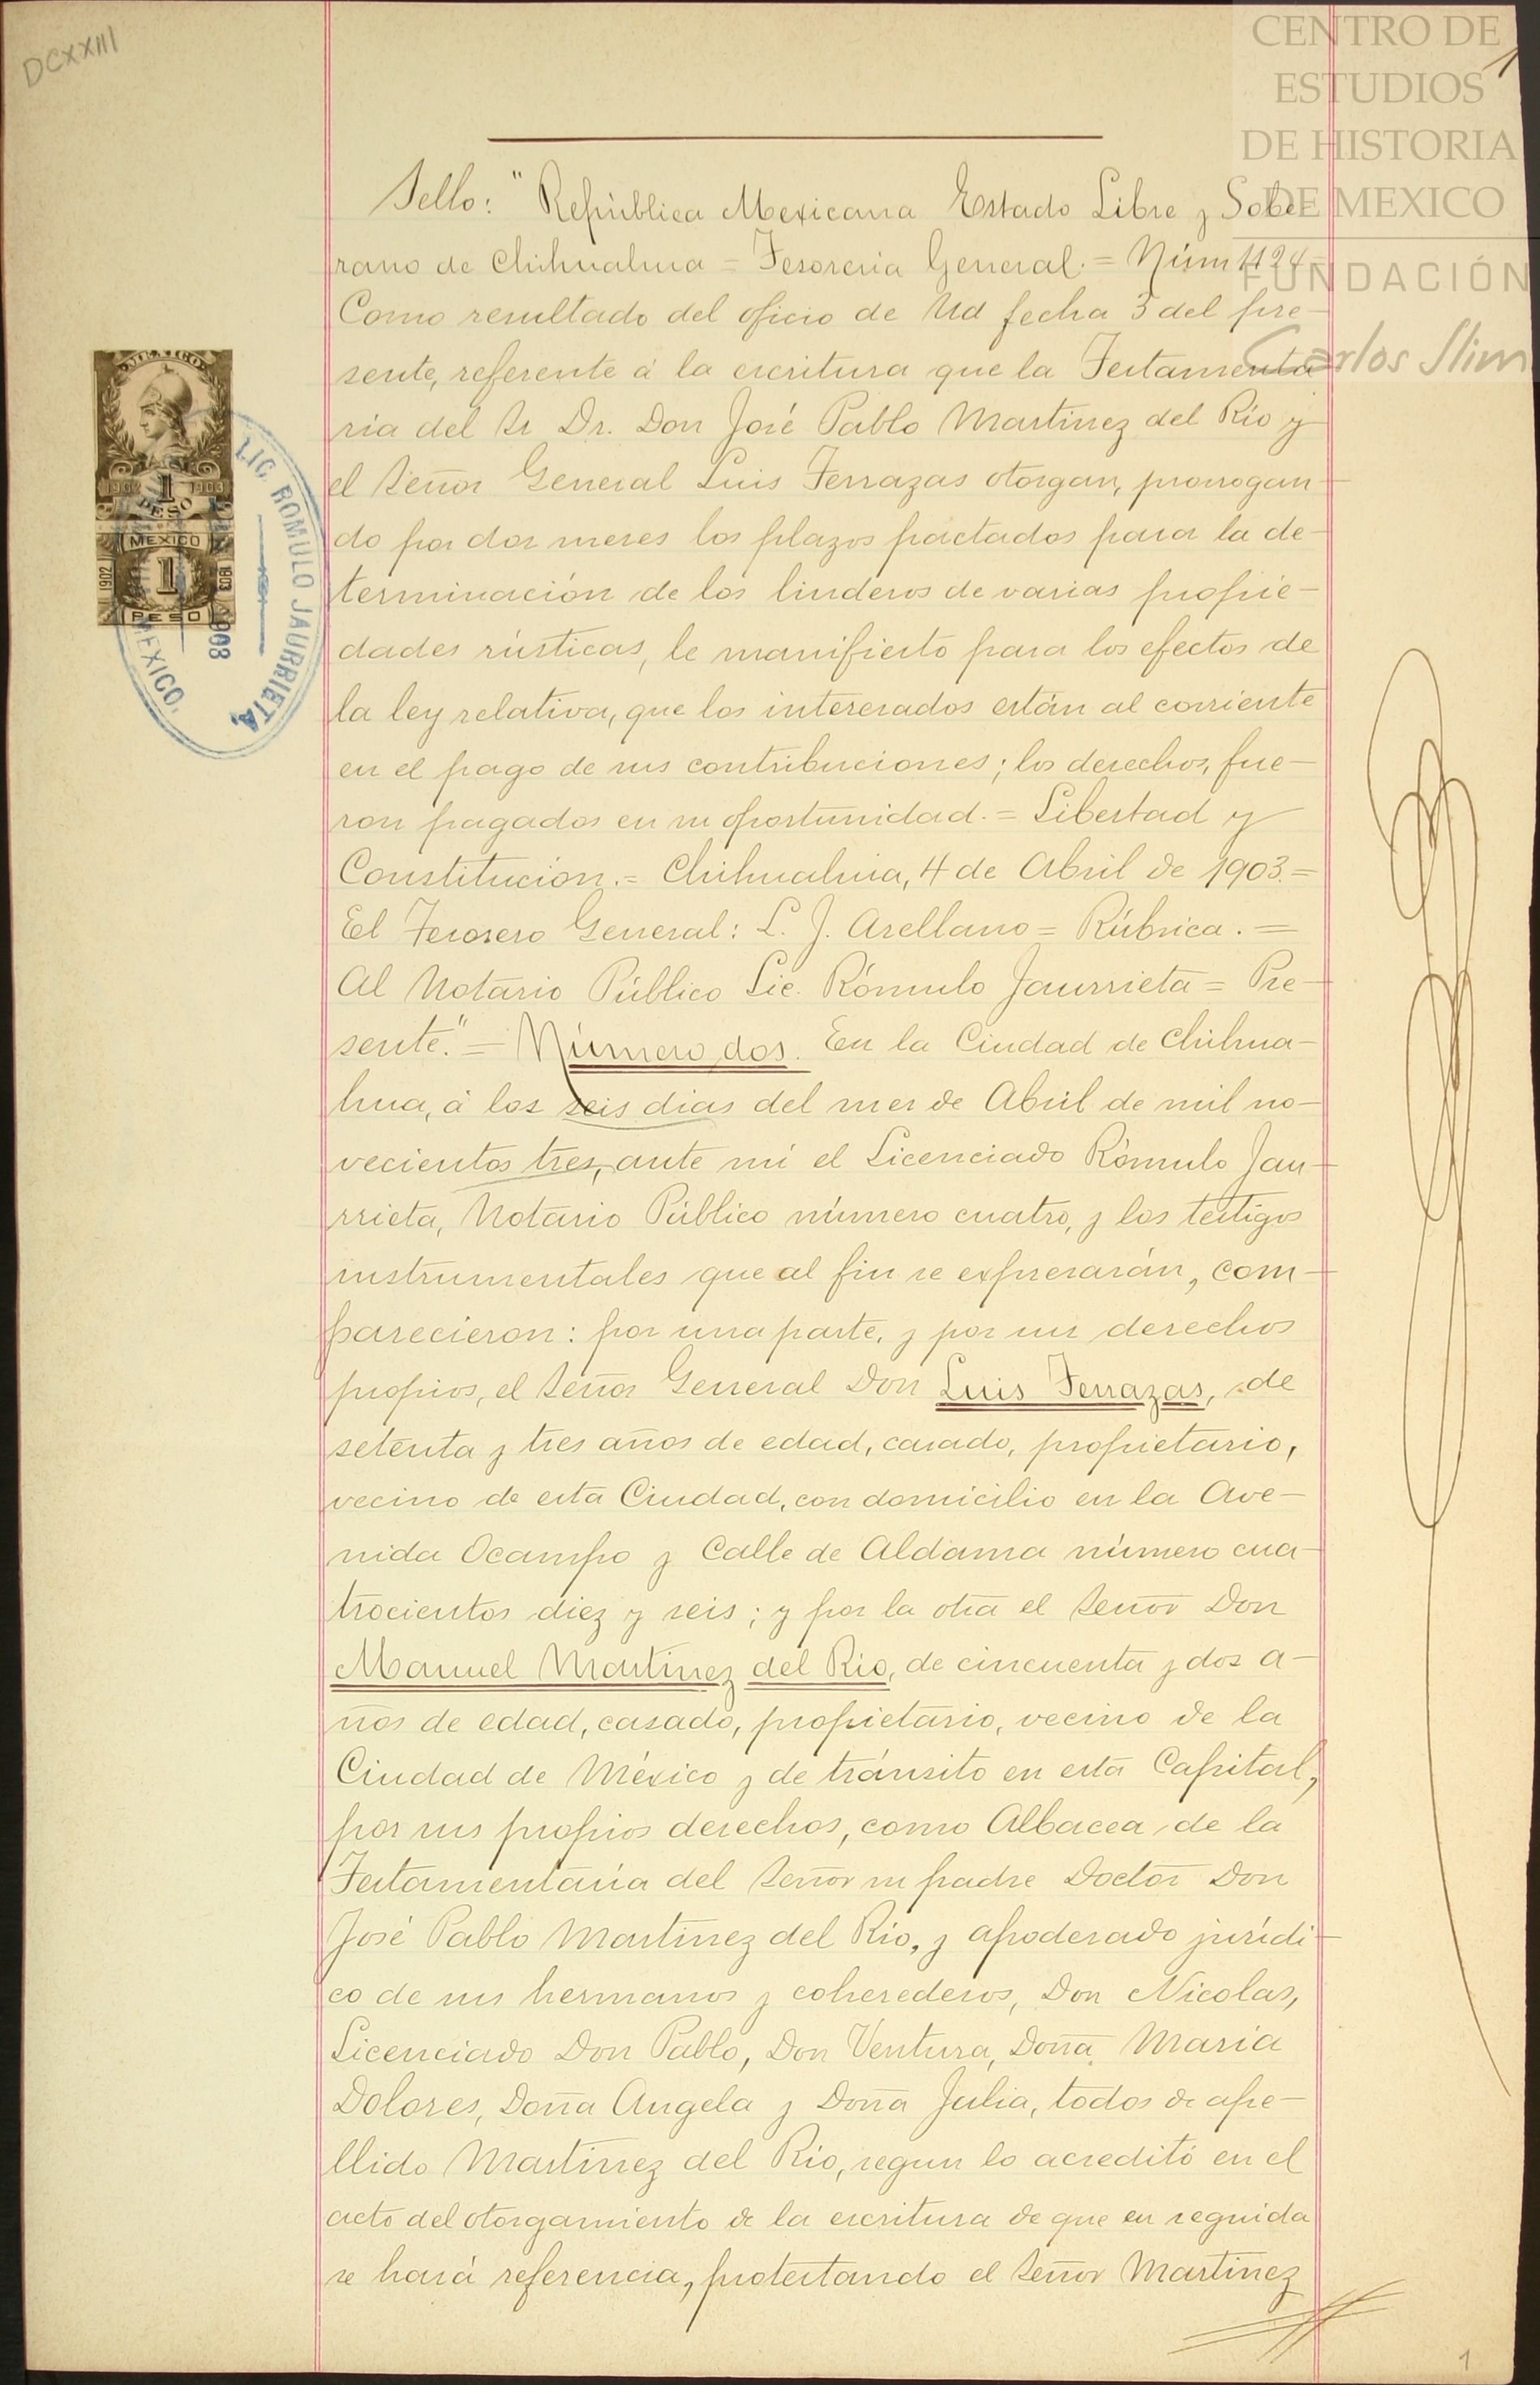 DCXXIII
CENTRO DE
ESTUDIOS
DE HISTORIA
DE MEXICO
FUNDACIÓN
Carlos Slim
1
Sello: "República Mexicana Estado Libre y Sobe
rano de Chihuahua = Tesoreria General. = Núm 1124-
Como resultado del oficio de Ud fecha 3 del pre-
sente, referente á la escritura que la Testamenta
ria del Sr Dr. Don José Pablo Martinez del Rio y
el Señor General Luis Terrazas otorgan, prorrogan-
do por dos meses los plazos pactados para la de-
terminación de los linderos de varias propie-
dades rústicas, le manifiesto para los efectos de
la ley relativa, que los interesados están al corriente
en el pago de sus contribuciones; los derechos, fue-
ron pagados en su oportunidad. = Libertad y
Constitución. = Chihuahua, 4 de Abril de 1903. =
El Tesorero General: L. J. Arellano = Rúbrica. =
Al Notario Público Lic. Rómulo Jaurrieta = Pre-
sente." = Número dos. En la Ciudad de Chihua-
hua, á los seis dias del mes de Abril de mil no-
vecientos tres, ante mi el Licenciado Rómulo Jau-
rrieta, Notario Público número cuatro, y los testigos
instrumentales que al fin se expresarán, com-
parecieron: por una parte, y por sus derechos
propios, el Señor General Don Luis Terrazas, de
setenta y tres años de edad, casado, propietario,
vecino de esta Ciudad, con domicilio en la Ave-
nida Ocampo y Calle de Aldama número cua-
trocientos diez y seis; y por la otra el Señor Don
Manuel Martinez del Rio, de cincuenta y dos a-
ños de edad, casado, propietario, vecino de la
Ciudad de México y de tránsito en esta Capital,
por sus propios derechos, como Albacea de la
Testamentaria del Señor su padre Doctor Don
José Pablo Martinez del Rio, y apoderado jurídi-
co de sus hermanos y coherederos, Don Nicolas,
Licenciado Don Pablo, Don Ventura, Doña Maria
Dolores, Doña Angela y Doña Julia, todos de ape-
llido Martinez del Rio, segun lo acreditó en el
acto del otorgamiento de la escritura de que en seguida
se hará referencia, protestando el Señor Martinez
MEXICO
1902 1 1903
PESO
MEXICO
1902 1 1903
PESO
LIC. ROMULO JAURRIETA,
MEXICO.
1